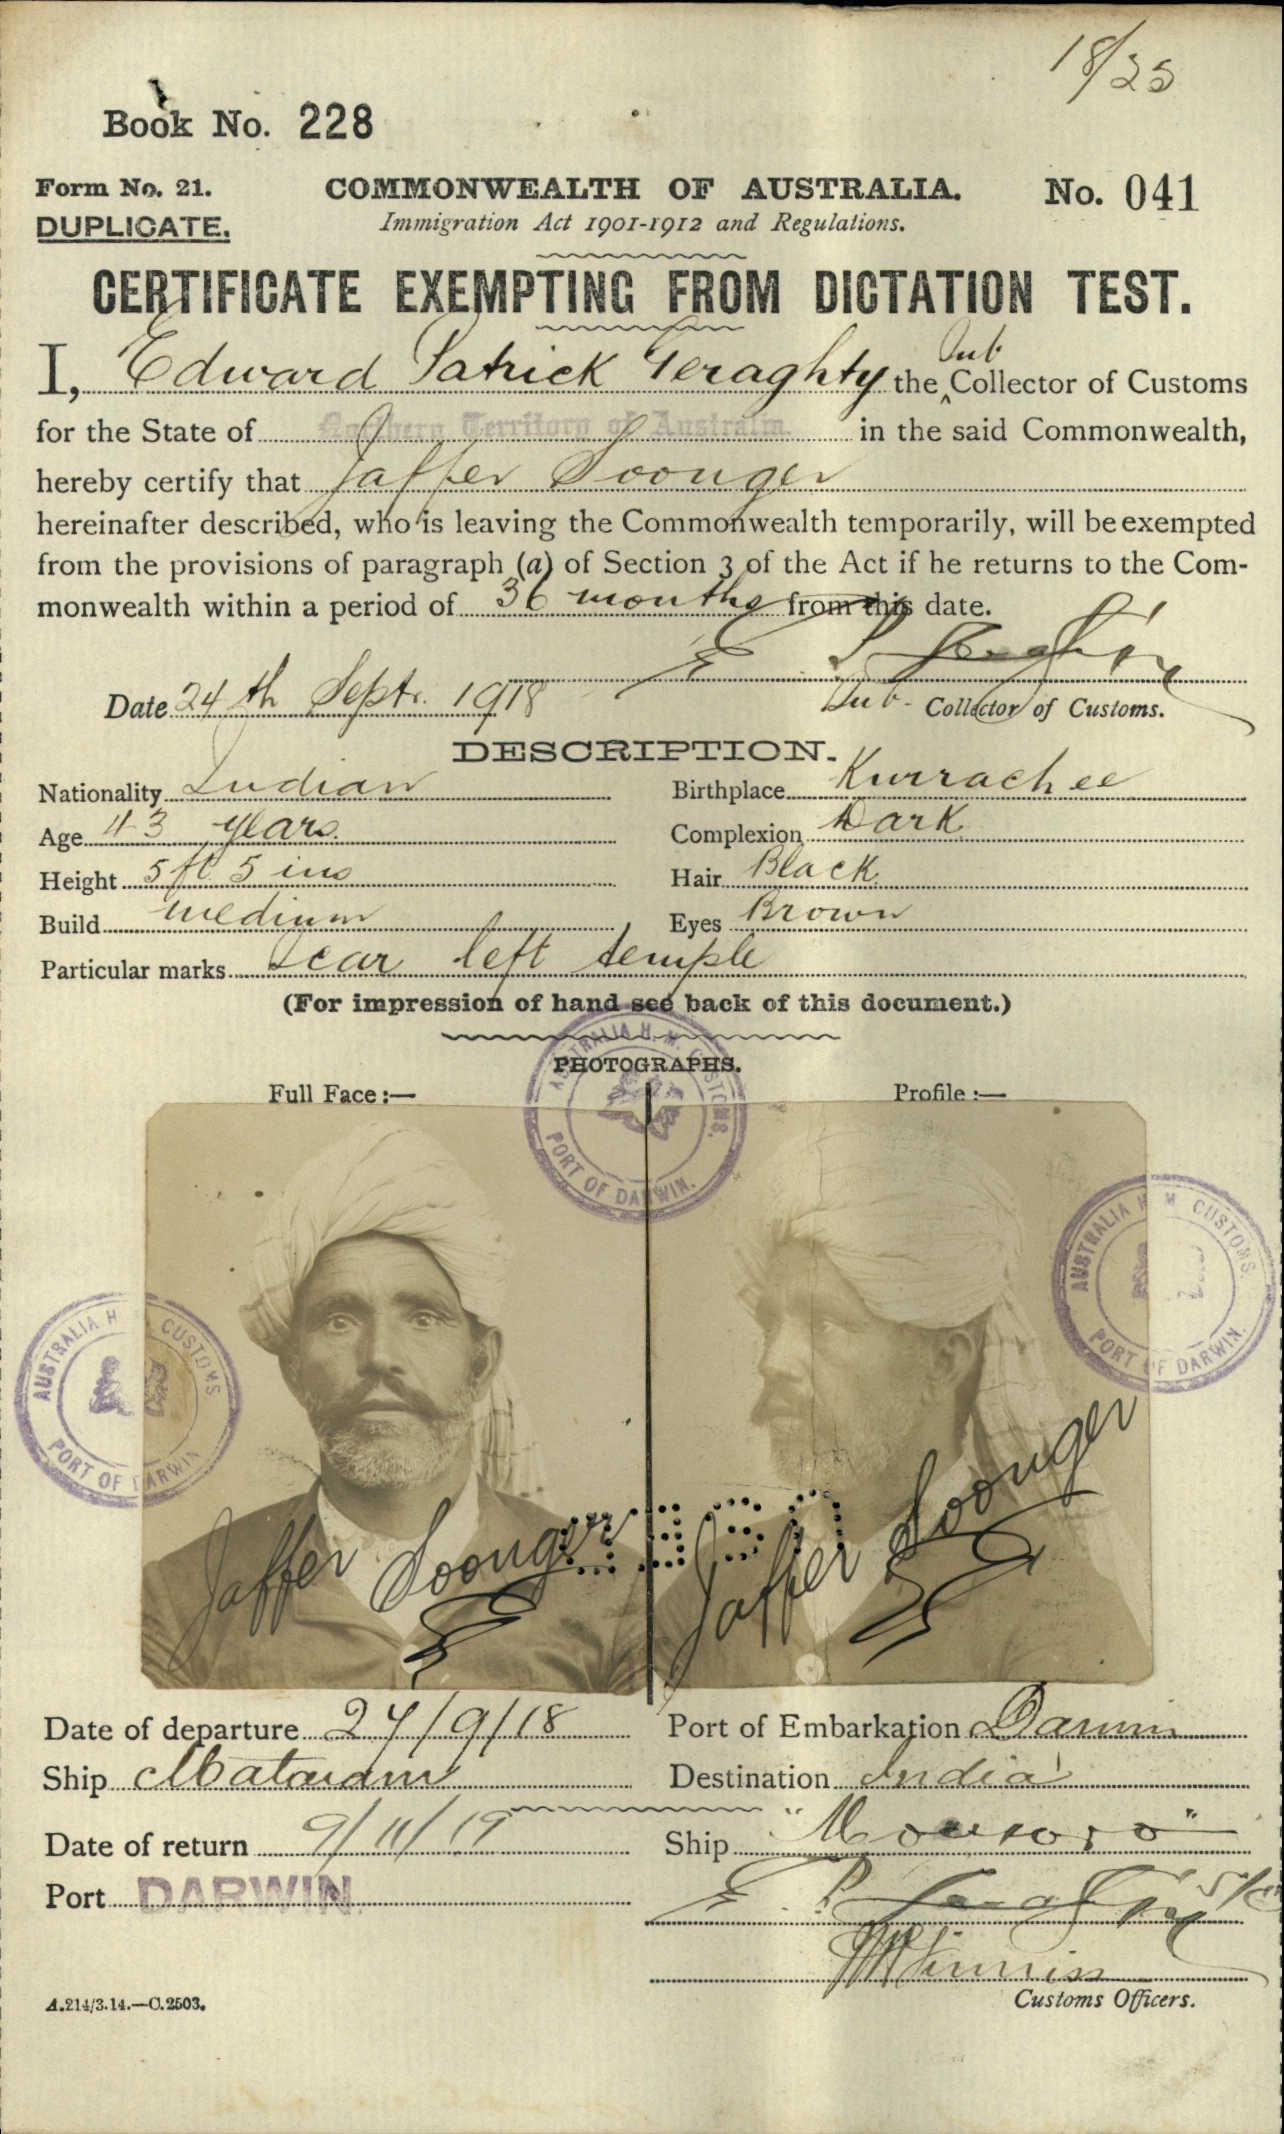 18/25
Book No. 228
Form No. 21.
COMMONWEALTH OF AUSTRALIA.
No. 041
DUPLICATE.
Immigration Act 1901-1912 and Regulations.
CERTIFICATE EXEMPTING FROM DICTATION TEST.
I, Edward Patrick Geraghty the Sub Collector of Customs
for the State of Northern Territory of Australia in the said Commonwealth,
hereby certify that Jaffer Soonger
hereinafter described, who is leaving the Commonwealth temporarily, will be exempted
from the provisions of paragraph (a) of Section 3 of the Act if he returns to the Com-
monwealth within a period of 36 months from this date.
E. P. Geraghty
Date 24th Septr. 1918
Sub- Collector of Customs.
DESCRIPTION.
Nationality Indian
Birthplace Kurrachee
Age 43 years
Complexion Dark
Height 5 ft 5 ins
Hair Black
Build medium
Eyes Brown
Particular marks Scar left temple
(For impression of hand see back of this document.)
PHOTOGRAPHS.
Full Face :—
Profile :—
AUSTRALIA H. M. CUSTOMS.
PORT OF DARWIN.
AUSTRALIA H. M. CUSTOMS.
PORT OF DARWIN.
AUSTRALIA H. M. CUSTOMS
PORT OF DARWIN
Jaffer Soonger
Jaffer Soonger
Date of departure 27/9/18
Port of Embarkation Darwin
Ship Mataram
Destination India
Date of return 9/11/19
Ship "Montoro"
Port DARWIN.
E. P. Geraghty S/C
Customs Officers.
A.214/3.14.—C.2503.